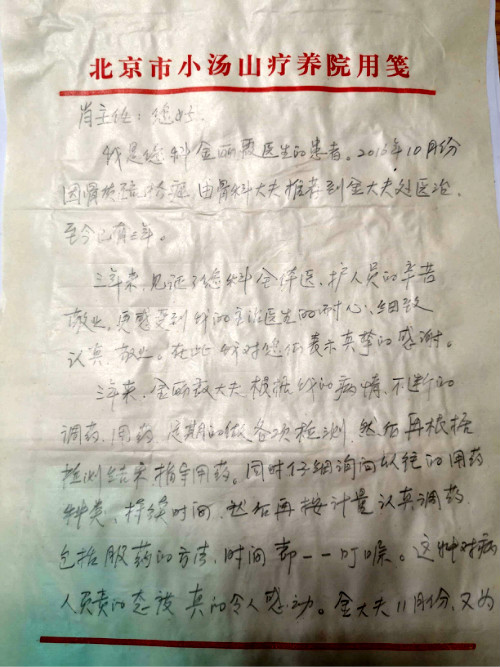 北京市小汤山疗养院用笺
肖主任：您好.
我是您科金丽霞医生的患者。2016年10月份
因骨质疏松症 由骨科大夫推荐到金大夫处医治,
至今已有三年。
三年来, 见证了您科全体医、护人员的辛苦
敬业, 更感受到我的主治医生的耐心、细致
认真、敬业。在此 对您们表示真挚的感谢。
三年来, 金丽霞大夫根据我的病情, 不断的
调药、用药 定期的做各项检测, 然后再根据
检测结果指导用药。同时仔细询问以往的用药
种类、持续时间, 然后再按计量认真调药
包括服药的方法, 时间都一一叮嘱。这种对病
人负责的态度 真的令人感动。金大夫11月份, 又为